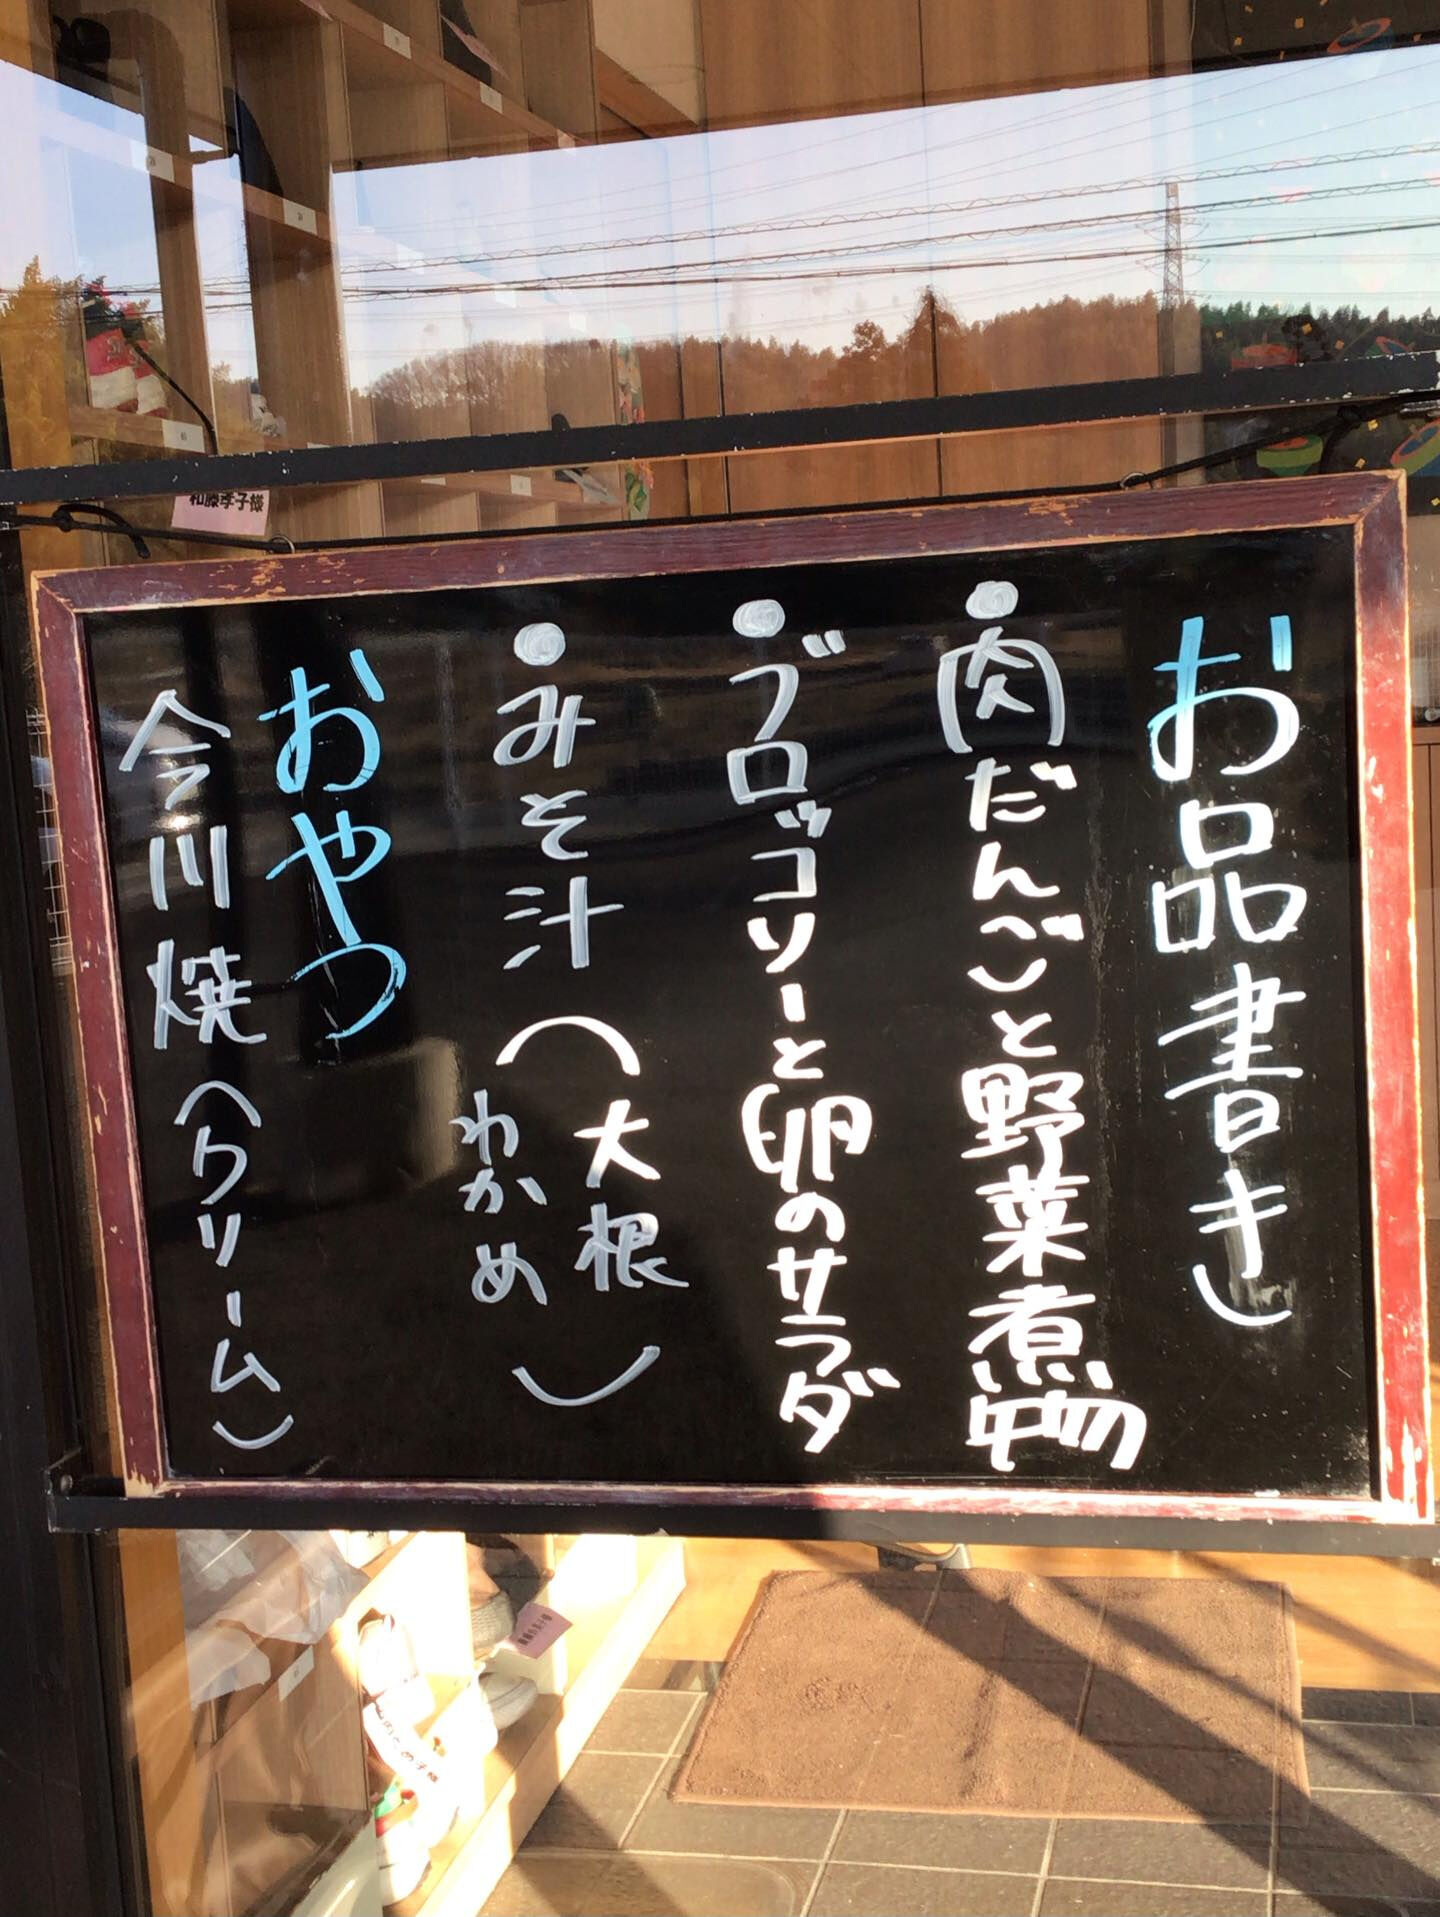 お品書き
肉だんごと野菜煮物
ブロッコリーと卵のサラダ
みそ汁(大根
わかめ)
おやつ
今川焼(クリーム)